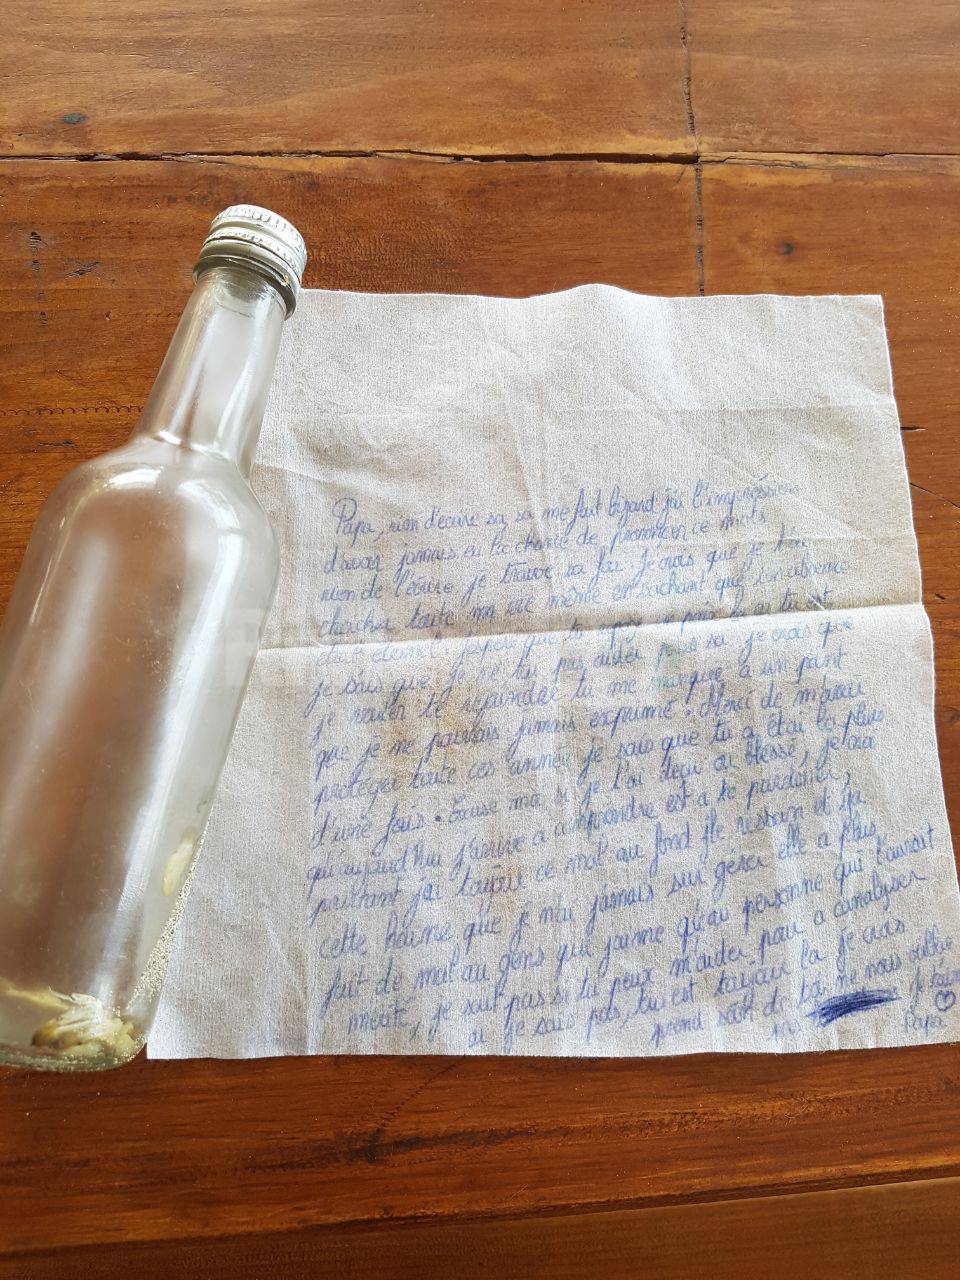 Papa, rien d'écrire sa, sa me fait bizard j'ai l'impréssion
d'avoir jamais eu la chance de prononcer ce mots
rien de l'écrire je trouve sa fou je crois que je t'en
chercher toute ma vie même en sachant que
était éternel. J'espère que tu en paix la ou tu est
je sais que je ne tu pas aider pour sa je crois que
je vouler te rejoindre tu me manque a un point
que je ne pourrais jamais exprimé. Merci de m'avoir
protéger toute ces année je sais que tu a étai la plus
d'une fois. Éxuse moi si je t'ai déçu ou blessé, je
qu'aujourd'hui j'arrive a comprendre est a te pardoner,
pourtant j'ai toujour ce mal au fond je le ressent et j'ai
cette haine que je n'ai jamais su gérer elle a plus
fait de mal au gens qui j'aime qu'au personne qui l'aurait
mérité, je sait pas si tu peux m'aider pour a canalyser
ou je sais pas, tu est toujour la je crois
prend soin de toi, ne nous oublie
pas je t'aime
Papa ♡